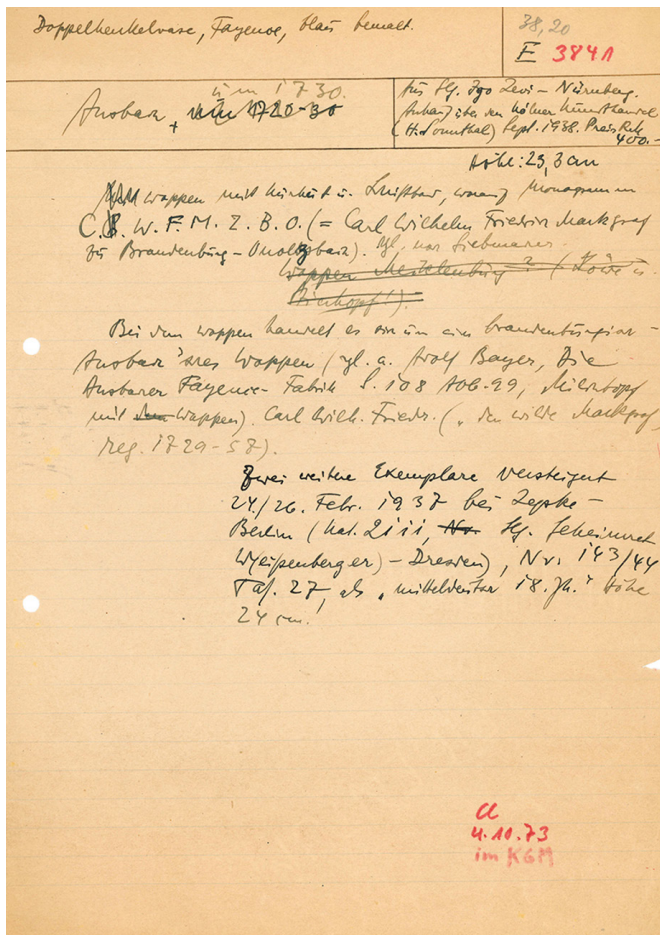 Doppelhenkelvase, Fayence, blau bemalt.
38,20
E 3841
um 1730.
Ansbach, um 1720-30
Aus Slg. Igo Levi - Nürnberg.
Ankauf über den Kölner Kunsthandel
(H. Sonnthal) Sept. 1938. Preis Rmk
400.-
Höhe: 23,3 cm
Wappen mit Kurhut u. Laubband, worauf Monogramm
C. W. F. M. Z. B. O. (= Carl Wilhelm Friedrich Markgraf
zu Brandenburg - Onolzbach). Vgl. Siebmacher.
Wappen Mecklenburg? (Löwe u.
Stierkopf!).
Bei dem Wappen handelt es sich um ein brandenburgisch-
Ansbach'sches Wappen (vgl. a. Adolf Bayer, Die
Ansbacher Fayence-Fabrik S. 108 Abb. 99, Milchtopf
mit dem Wappen). Carl Wilh. Friedr. („der wilde Markgraf,
reg. 1729-57).
Zwei weitere Exemplare versteigert
24./26. Febr. 1937 bei Lepke -
Berlin (Kat. 2111, Nr. Slg. Geheimrat
Weissenberger) - Dresden), Nr. 143/44
Taf. 27, als „mitteldeutsch 18. Jh." Höhe
24 cm.
Cl
4.10.73
im KGM